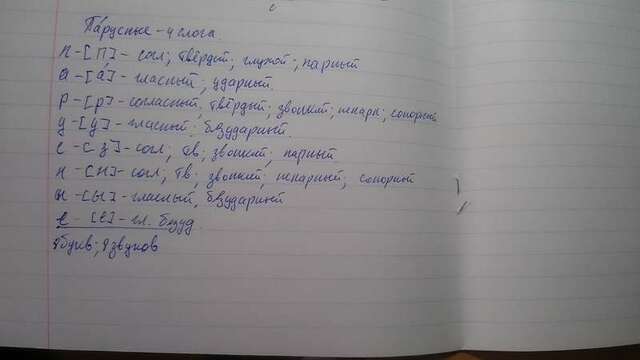 Па́русные - 4 слога
п - [п] - согл; твёрдый; глухой; парный
а - [а́] - гласный; ударный.
р - [р] - согласный; твёрдый; звонкий; непарн; сонорный
у - [у] - гласный; безударный
с - [з] - согл; тв; звонкий; парный
н - [н] - согл; тв; звонкий; непарный; сонорный
ы - [ы] - гласный, безударный
е - [е] - гл. безуд.
8 букв; 8 звуков